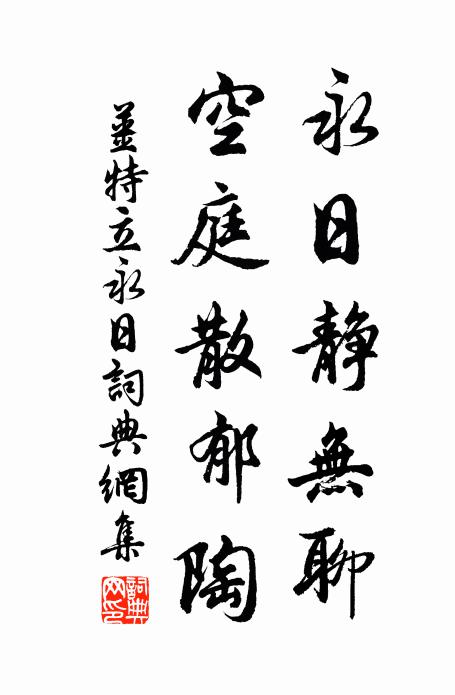 永日静無聊
空庭散郁陶
姜特立永日詞典網集
詞典網印